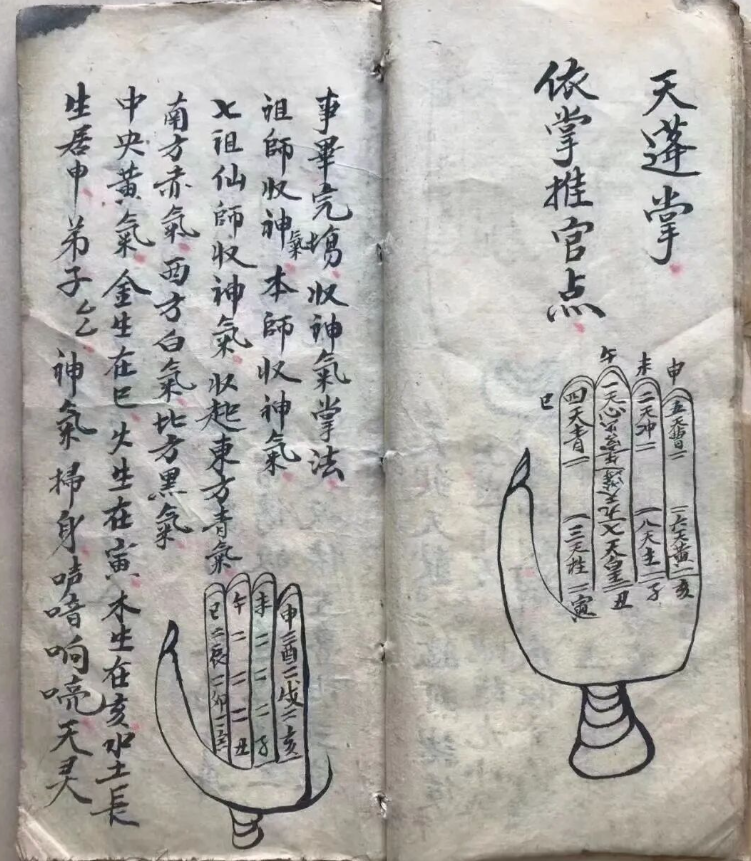 天蓬掌
依掌推官点
申
未
午
巳
五天
二天冲二
一天心
四天青一
六天黄一
八天主二
七天皇
三天任二
亥
子
丑
寅
事畢完塲收神氣掌法
祖師收神氣本師收神氣
七祖仙師收神氣收起東方青氣
南方赤氣西方白氣北方黑氣
中央黃氣金生在巳火生在寅木生在亥水土長
生居申弟子么神氣掃身声喑响喨天灵
申二酉二戌二亥
未二二二子
午二二二丑
巳二辰二卯一寅